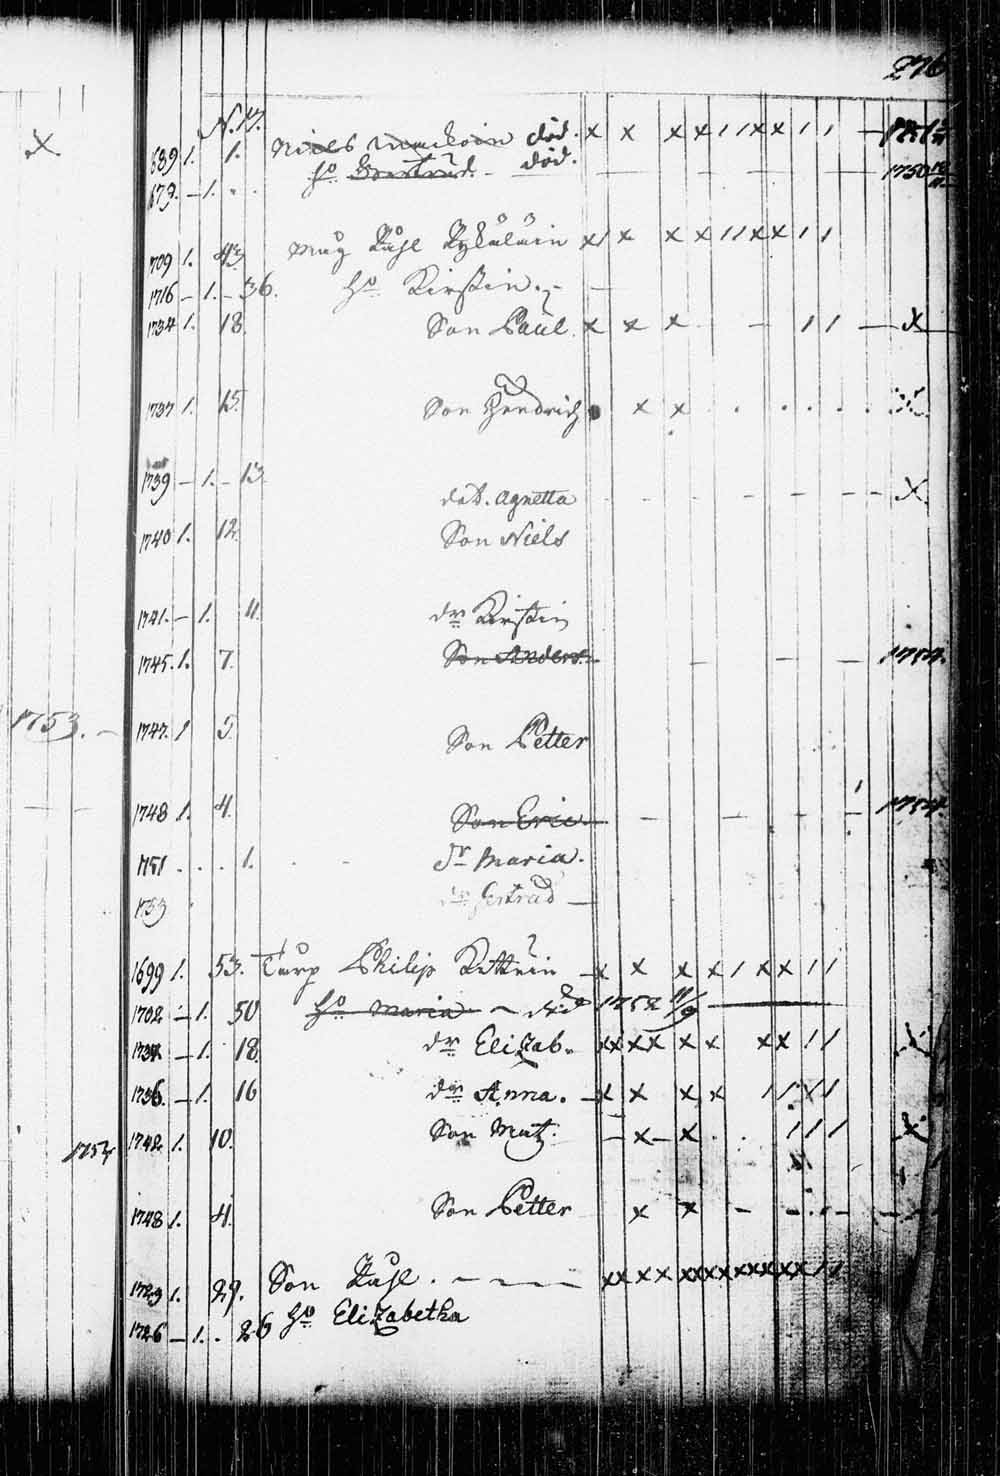 276
N. 17.
1689 1. 1. Niels död. x x x x 1 1 x x 1 1 — 1751
1679. — 1. " " h:o Gertrud. död. 1750
1709 1. 43 Påhl x x x x 1 1 x x 1 1
1716 — 1. — 36. h:o Kirstin. —
1734 1. 18. Son Paul. x x x — 1 1 — X
1737 1. 15. Son Hendrich x x . . . . . X
1739 — 1. — 13. dot. Agnetta — — — — X
1740 1. 12. Son Niels
1741. — 1. 11. dr Kirstin
1745. 1. 7. Son Anders. — — — — 1754.
1753. — 1747. 1 5. Son Petter
1748 1. 4. Son Eric. — — — — 1754.
1751 . . . . 1. dr Maria.
1753 dr Gertrud —
1699 1. 53. Philip x x x x 1 x x 1 1
1702 — 1. 50 h:o Maria — död 1752 11/9
1734 — 1. 18. dr Elizab. xx xx x x x x 1 1 X
1736. — 1. 16 dr Anna. — x x x x 1 1 x 1
1754 1742 1. 10. Son Mat. — x — x . . 1 1 1 X
1748 1. 4. Son Petter x x — — —
1723 1. 29. Son Påhl. — — — xx x x xxxx xxxxxx 1 1
1726 — 1. . 26 h:o Elizabetha